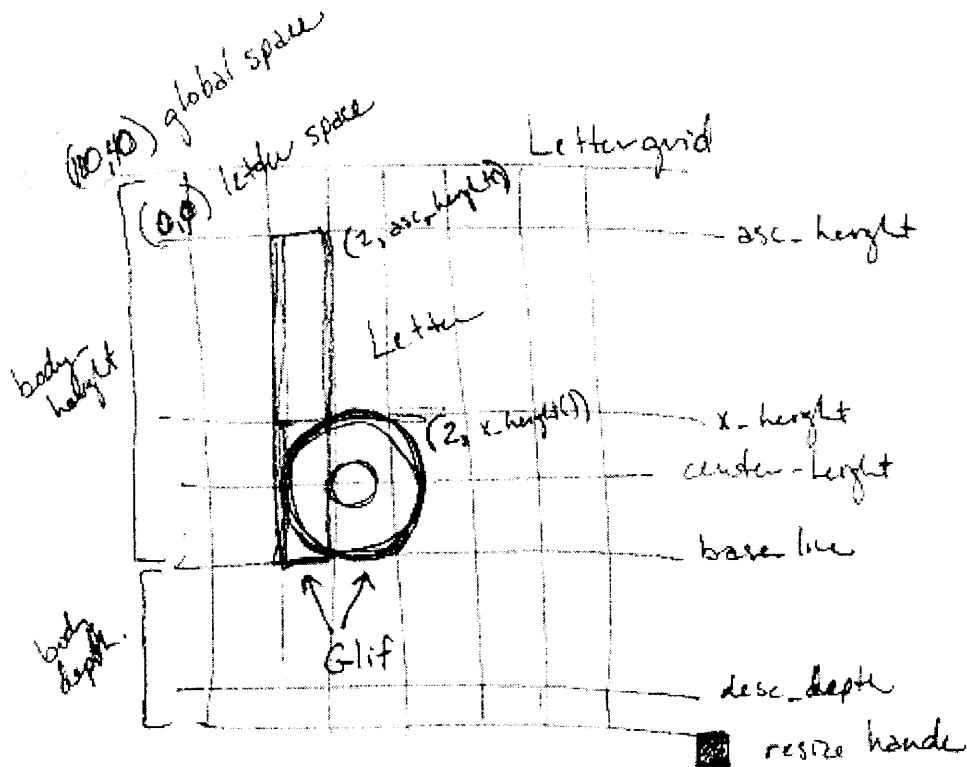 (100,40) global space
(0,0) letter space
Lettergrid
(2, asc_height())
asc_height
Letter
body-
height
(2, x_height())
x_height
center-height
base line
Glif
body
depth.
desc_depth
resize hande